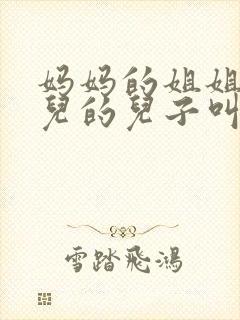 妈妈的姐姐
兒的兒子叫
雪踏飛鴻